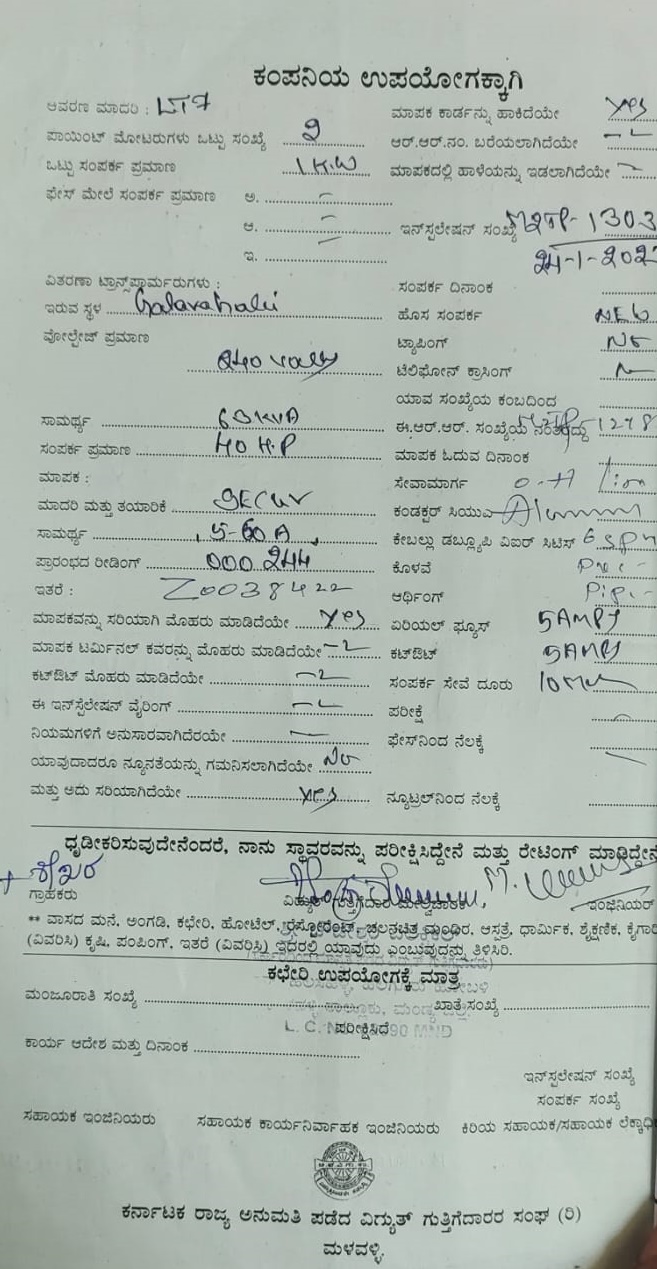 ಕಂಪನಿಯ ಉಪಯೋಗಕ್ಕಾಗಿ
ಆವರಣ ಮಾದರಿ : LT7
ಮಾಪಕ ಕಾರ್ಡನ್ನು ಹಾಕಿದೆಯೇ yes
ಪಾಯಿಂಟ್ ಮೋಟರುಗಳು ಒಟ್ಟು ಸಂಖ್ಯೆ 2
ಆರ್.ಆರ್.ನಂ. ಬರೆಯಲಾಗಿದೆಯೇ
ಒಟ್ಟು ಸಂಪರ್ಕ ಪ್ರಮಾಣ 1 K.W
ಮಾಪಕದಲ್ಲಿ ಹಾಳೆಯನ್ನು ಇಡಲಾಗಿದೆಯೇ
ಫೇಸ್ ಮೇಲೆ ಸಂಪರ್ಕ ಪ್ರಮಾಣ ಅ.
ಆ.
ಇನ್‌ಸ್ಟಲೇಷನ್ ಸಂಖ್ಯೆ 1303
ಇ.
24-1-202
ವಿತರಣಾ ಟ್ರಾನ್ಸ್‌ಫಾರ್ಮರುಗಳು :
ಸಂಪರ್ಕ ದಿನಾಂಕ
ಇರುವ ಸ್ಥಳ
ಹೊಸ ಸಂಪರ್ಕ NEW
ವೋಲ್ಟೇಜ್ ಪ್ರಮಾಣ 240 volts
ಟ್ಯಾಪಿಂಗ್ No
ಟೆಲಿಫೋನ್ ಕ್ರಾಸಿಂಗ್
ಯಾವ ಸಂಖ್ಯೆಯ ಕಂಬದಿಂದ
ಸಾಮರ್ಥ್ಯ 63 KVA
ಈ.ಆರ್.ಆರ್. ಸಂಖ್ಯೆಯ ನಂತರದ್ದು 1278
ಸಂಪರ್ಕ ಪ್ರಮಾಣ 40 H.P
ಮಾಪಕ ಓದುವ ದಿನಾಂಕ
ಮಾಪಕ :
ಸೇವಾಮಾರ್ಗ O-H Line
ಮಾದರಿ ಮತ್ತು ತಯಾರಿಕೆ SECUR
ಕಂಡಕ್ಟರ್ ಸಿಯುಎ
ಸಾಮರ್ಥ್ಯ 5-60 A
ಕೇಬಲ್ಲು ಡಬ್ಲ್ಯೂಪಿ ವಿಐರ್ ಸಿಟಿಸ್
ಪ್ರಾರಂಭದ ರೀಡಿಂಗ್ 000244
ಕೊಳವೆ
ಇತರೆ : Z0038422
ಆರ್ಥಿಂಗ್ Pipe
ಮಾಪಕವನ್ನು ಸರಿಯಾಗಿ ಮೊಹರು ಮಾಡಿದೆಯೇ yes
ಏರಿಯಲ್ ಫ್ಯೂಸ್ 5AMPS
ಮಾಪಕ ಟರ್ಮಿನಲ್ ಕವರನ್ನು ಮೊಹರು ಮಾಡಿದೆಯೇ
ಕಟ್‌ಔಟ್ 5AMPS
ಕಟ್‌ಔಟ್ ಮೊಹರು ಮಾಡಿದೆಯೇ
ಸಂಪರ್ಕ ಸೇವೆ ದೂರು
ಈ ಇನ್‌ಸ್ಟಲೇಷನ್ ವೈರಿಂಗ್
ಪರೀಕ್ಷೆ
ನಿಯಮಗಳಿಗೆ ಅನುಸಾರವಾಗಿದೆರಯೇ
ಫೇಸ್‌ನಿಂದ ನೆಲಕ್ಕೆ
ಯಾವುದಾದರೂ ನ್ಯೂನತೆಯನ್ನು ಗಮನಿಸಲಾಗಿದೆಯೇ No
ಮತ್ತು ಅದು ಸರಿಯಾಗಿದೆಯೇ yes
ನ್ಯೂಟ್ರಲ್‌ನಿಂದ ನೆಲಕ್ಕೆ
ಧೃಡೀಕರಿಸುವುದೇನೆಂದರೆ, ನಾನು ಸ್ಥಾವರವನ್ನು ಪರೀಕ್ಷಿಸಿದ್ದೇನೆ ಮತ್ತು ರೇಟಿಂಗ್ ಮಾಡಿದ್ದೇನೆ
ಗ್ರಾಹಕರು
ಇಂಜಿನಿಯರ್
** ವಾಸದ ಮನೆ, ಅಂಗಡಿ, ಕಛೇರಿ, ಹೋಟೆಲ್, ರೆಸ್ಟೋರೆಂಟ್, ಚಲನಚಿತ್ರ ಮಂದಿರ, ಆಸ್ಪತ್ರೆ, ಧಾರ್ಮಿಕ, ಶೈಕ್ಷಣಿಕ, ಕೈಗಾರಿ
(ವಿವರಿಸಿ) ಕೃಷಿ, ಪಂಪಿಂಗ್, ಇತರೆ (ವಿವರಿಸಿ) ಇದರಲ್ಲಿ ಯಾವುದು ಎಂಬುವುದನ್ನು ತಿಳಿಸಿರಿ.
ಕಛೇರಿ ಉಪಯೋಗಕ್ಕೆ ಮಾತ್ರ
ಮಂಜೂರಾತಿ ಸಂಖ್ಯೆ
ಖಾತೆ ಸಂಖ್ಯೆ
ಪರೀಕ್ಷಿಸಿದೆ
ಕಾರ್ಯ ಆದೇಶ ಮತ್ತು ದಿನಾಂಕ
ಇನ್‌ಸ್ಟಲೇಷನ್ ಸಂಖ್ಯೆ
ಸಂಪರ್ಕ ಸಂಖ್ಯೆ
ಸಹಾಯಕ ಇಂಜಿನಿಯರು ಸಹಾಯಕ ಕಾರ್ಯನಿರ್ವಾಹಕ ಇಂಜಿನಿಯರು ಕಿರಿಯ ಸಹಾಯಕ/ಸಹಾಯಕ ಲೆಕ್ಕಾಧಿ
ಕರ್ನಾಟಕ ರಾಜ್ಯ ಅನುಮತಿ ಪಡೆದ ವಿದ್ಯುತ್ ಗುತ್ತಿಗೆದಾರರ ಸಂಘ (ರಿ)
ಮಳವಳ್ಳಿ.